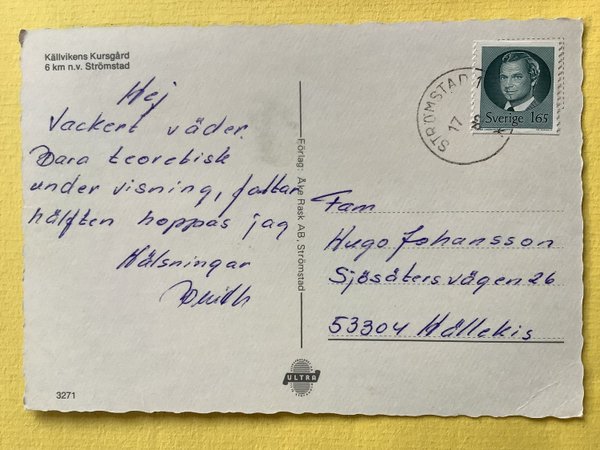 Källvikens Kursgård
6 km n.v. Strömstad
Hej
Vackert väder.
Bara teoretisk
undervisning, fattar
hälften hoppas jag
Hälsningar
Förlag: Åke Rask AB, Strömstad
STRÖMSTAD 1
17
8
Sverige 165
Fam
Hugo Johansson
Sjösätersvägen 26
53304 Hällekis
ULTRA
3271